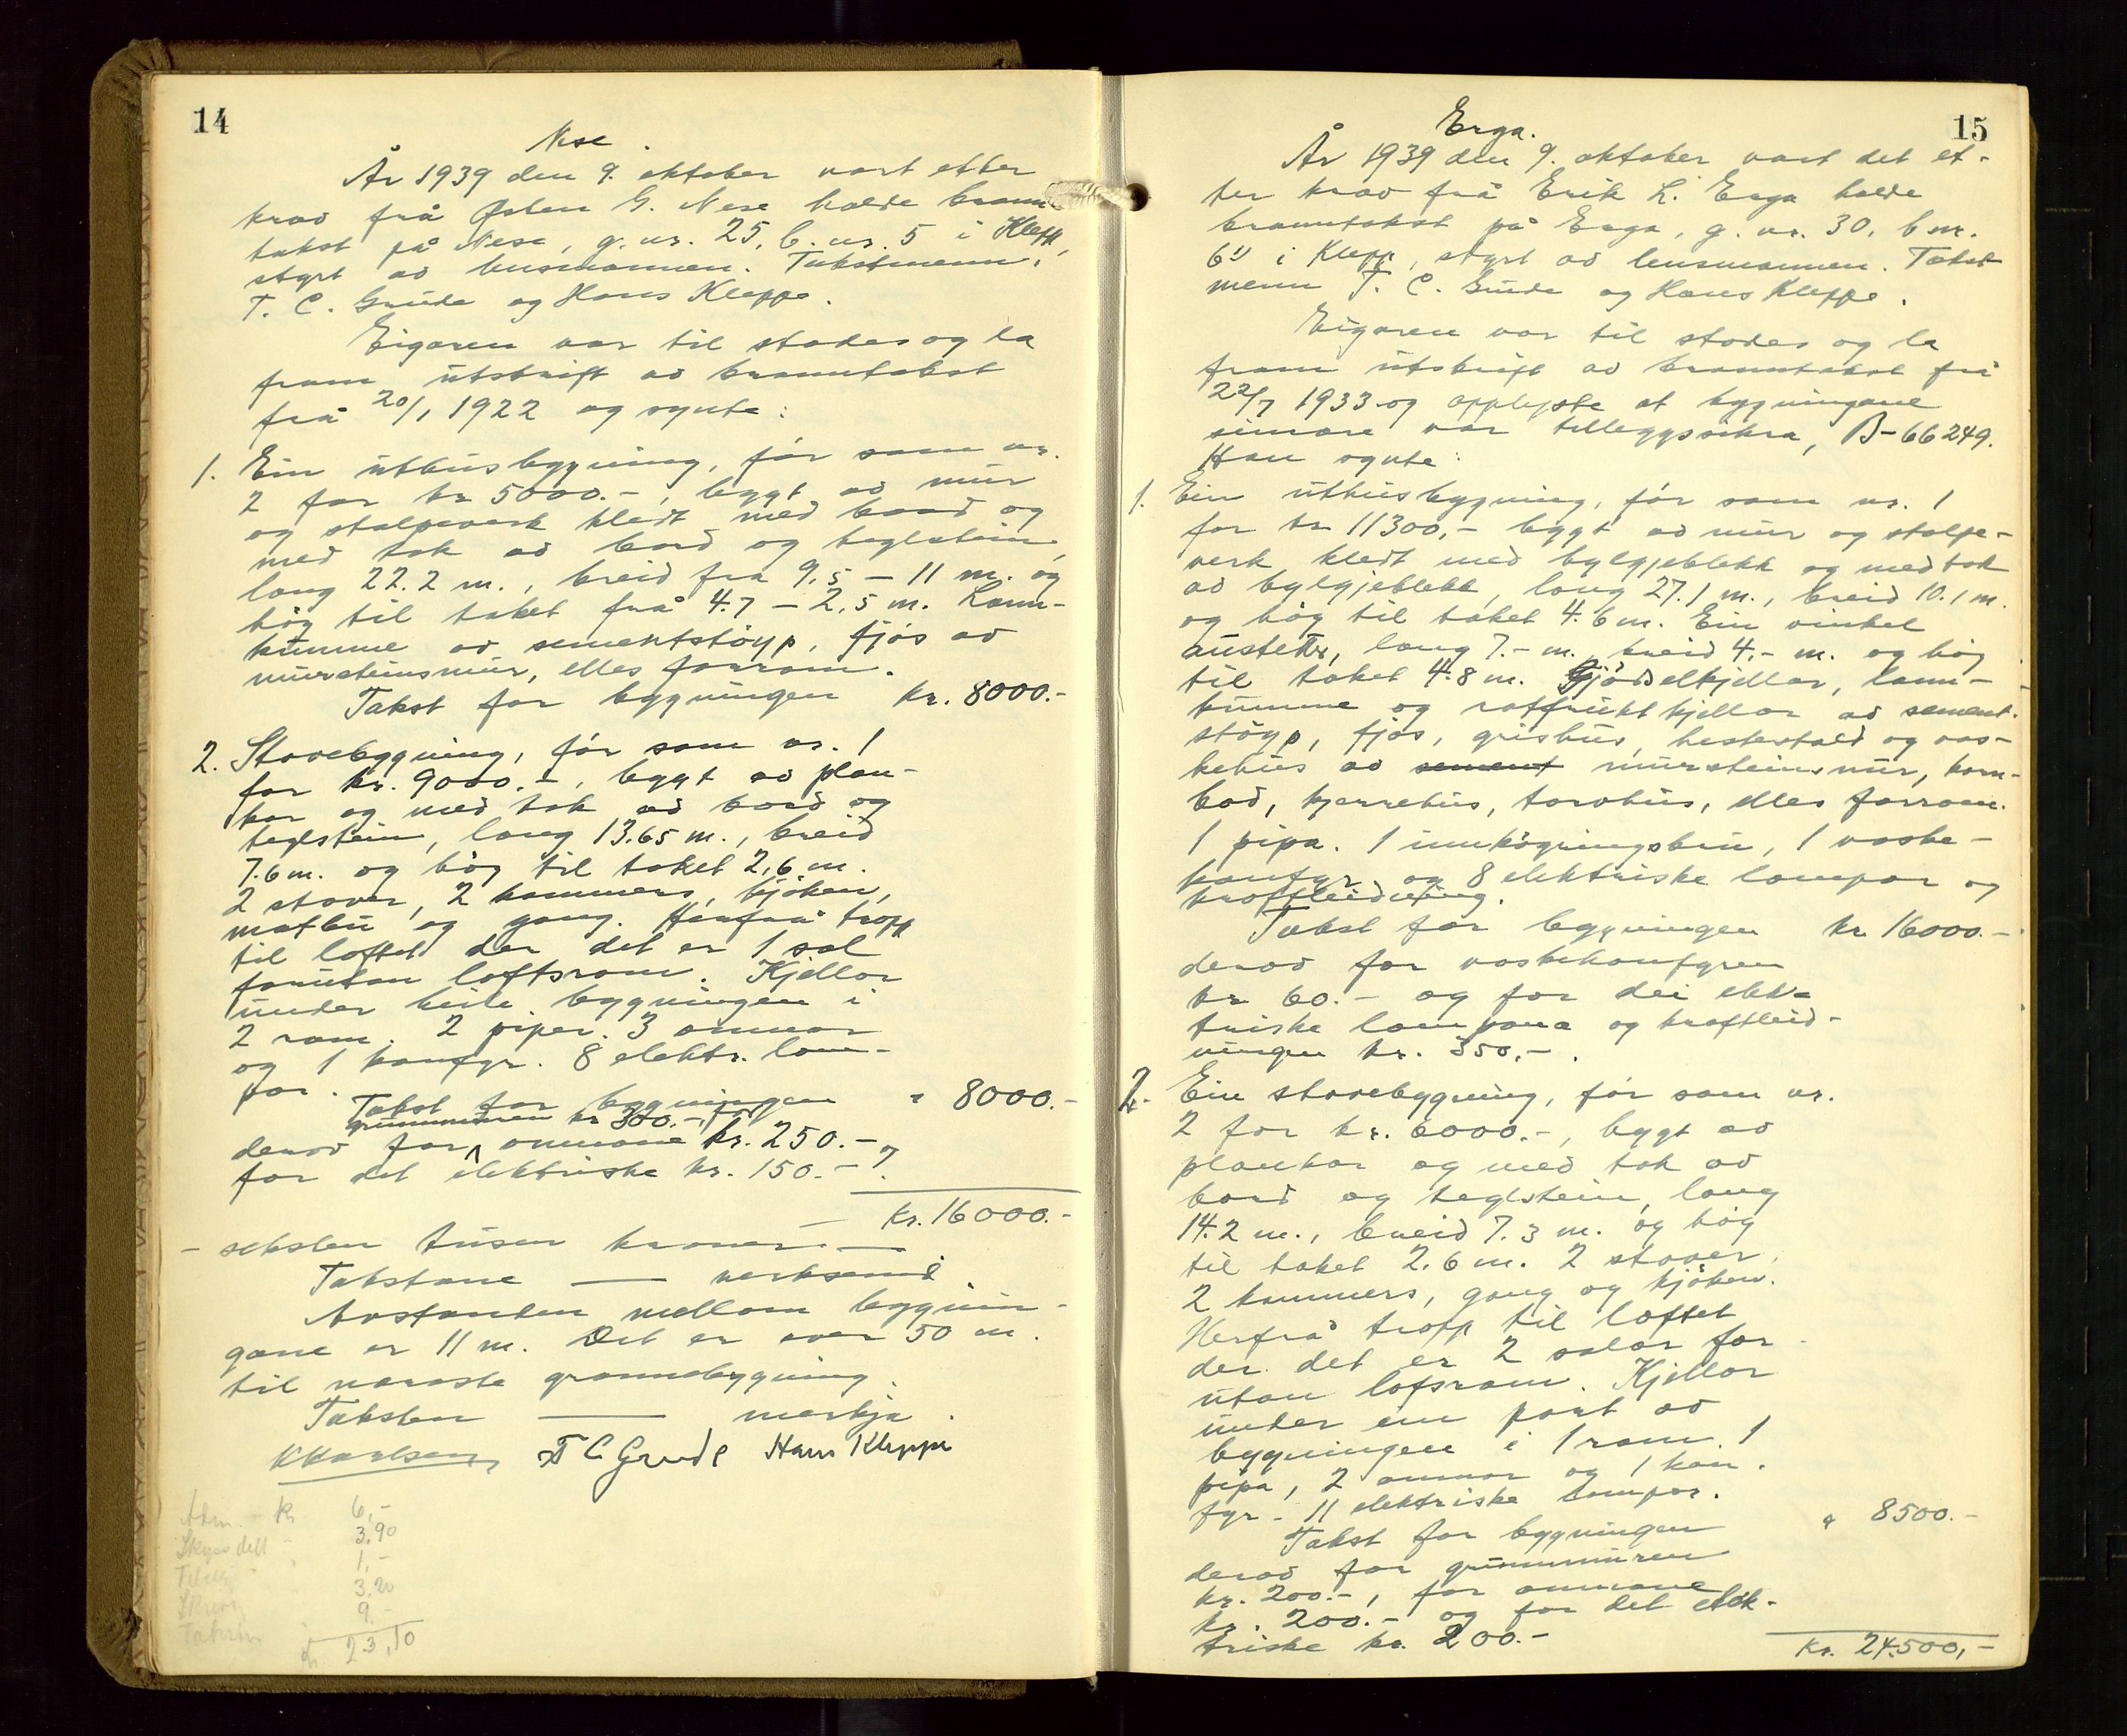 14
Nese.
År 1939 den 9. oktober vart etter
krav frå Østen G. Nese halde brann-
takst på Nese, g.nr. 25, b.nr. 5 i Klepp,
styrt av lensmannen. Takstmenn:
T. C. Grude og Hans Kleppe.
Eigaren var til stades og la
fram utskrift av branntakst
frå 20/1 1922 og synte:
1. Ein uthusbygning, før som nr.
2 for kr 5000.-, bygt av mur
og stolpeverk kledt med bord og
med tak av bord og teglstein,
lang 22.2 m., breid fra 9,5 - 11 m. og
høg til taket frå 4.7 - 2,5 m. Lann-
kumme av sementstøyp, fjøs av
mursteinsmur, elles forrom.
Takst for bygningen kr. 8000.-
2. Stovebygning, før som nr. 1
for kr. 9000.-, bygt av plan-
kar og med tak av bord og
teglstein, lang 13.65 m., breid
7.6 m. og høg til taket 2,6 m.
2 stover, 2 kammers, kjøken,
matbu og gang. Herfrå tropp
til loftet der det er 1 sal
forutan loftsrom. Kjellar
under heile bygningen i
2 rom. 2 piper. 3 omnar
og 1 komfyr. 8 elektr. lam-
par.
Takst for bygningen " 8000.-
grunnmuren kr 300.-, for
derav for omnane kr. 250.- og
for det elektriske kr. 150.-.
Kr. 16000.-
- seksten tusen kroner. —
Takstane — verksemd.
Avstanden mellom bygnin-
gane er 11 m. Det er over 50 m.
til næraste grannebygning.
Taksten — merkja.
KKarlsen, T C Grude Hans Kleppe
Adm. - Kr 6,-
Skyssdell - 3,90
1,-
3.20
9.-
Taksten
kr. 23,10
15
Erga.
År 1939 den 9. oktober vart det et-
ter krav frå Erik L. Erga halde
branntakst på Erga, g.nr. 30, b nr.
6 i Klepp, styrt av lensmannen. Takst-
menn T. C. Grude og Hans Kleppe.
Eigaren var til stades og la
fram utskrift av branntakst frå
22/7 1933 og opplyste at bygningane
seinare var tilleggsvikra, B-66249.
Han synte:
1. Ein uthusbygning, før som nr. 1
for kr 11300,- bygt av mur og stolpe-
verk kledt med bylgjeblekk og med tak
av bylgjeblekk, lang 27.1 m., breid 10.1 m.
og høg til taket 4.6 m. Ein vinkel
austetter, lang 7.- m., breid 4,- m. og høg
til taket 4.8 m. Gjødselkjellar, lann-
kumme og rotfruktkjellar av sement-
støyp, fjøs, grishus, hestestall og vas-
kehus av sement mursteinsmur, korn-
bod, kjerrehus, torvhus, elles forrom.
1 pipa. 1 innkøyringsbru, 1 vaske-
komfyr og 8 elektriske lampor og
kraftleidning.
Takst for bygningen kr 16000.-
derav for vaskekomfyren
kr 60.- og for dei elek-
triske lampane og kraftleid-
ningen kr. 350,-.
2. Ein stovebygning, før som nr.
2 for kr. 6000.-, bygt av
plankar og med tak av
bord og teglstein, lang
14.2 m., breid 7.3 m. og høg
til taket 2.6 m. 2 stover,
2 kammers, gang og kjøken.
Herfrå tropp til loftet
der det er 2 salar for-
utan lofsrom. Kjellar
under ein part av
bygningen i 1 rom. 1
pipa, 2 omnar og 1 kom-
fyr. 11 elektriske lampor.
Takst for bygningen " 8500.-
derav for grunnmuren
kr. 200.-, for omnane
kr. 200.- og for det elek-
triske kr. 200.-
Kr. 24.500,-